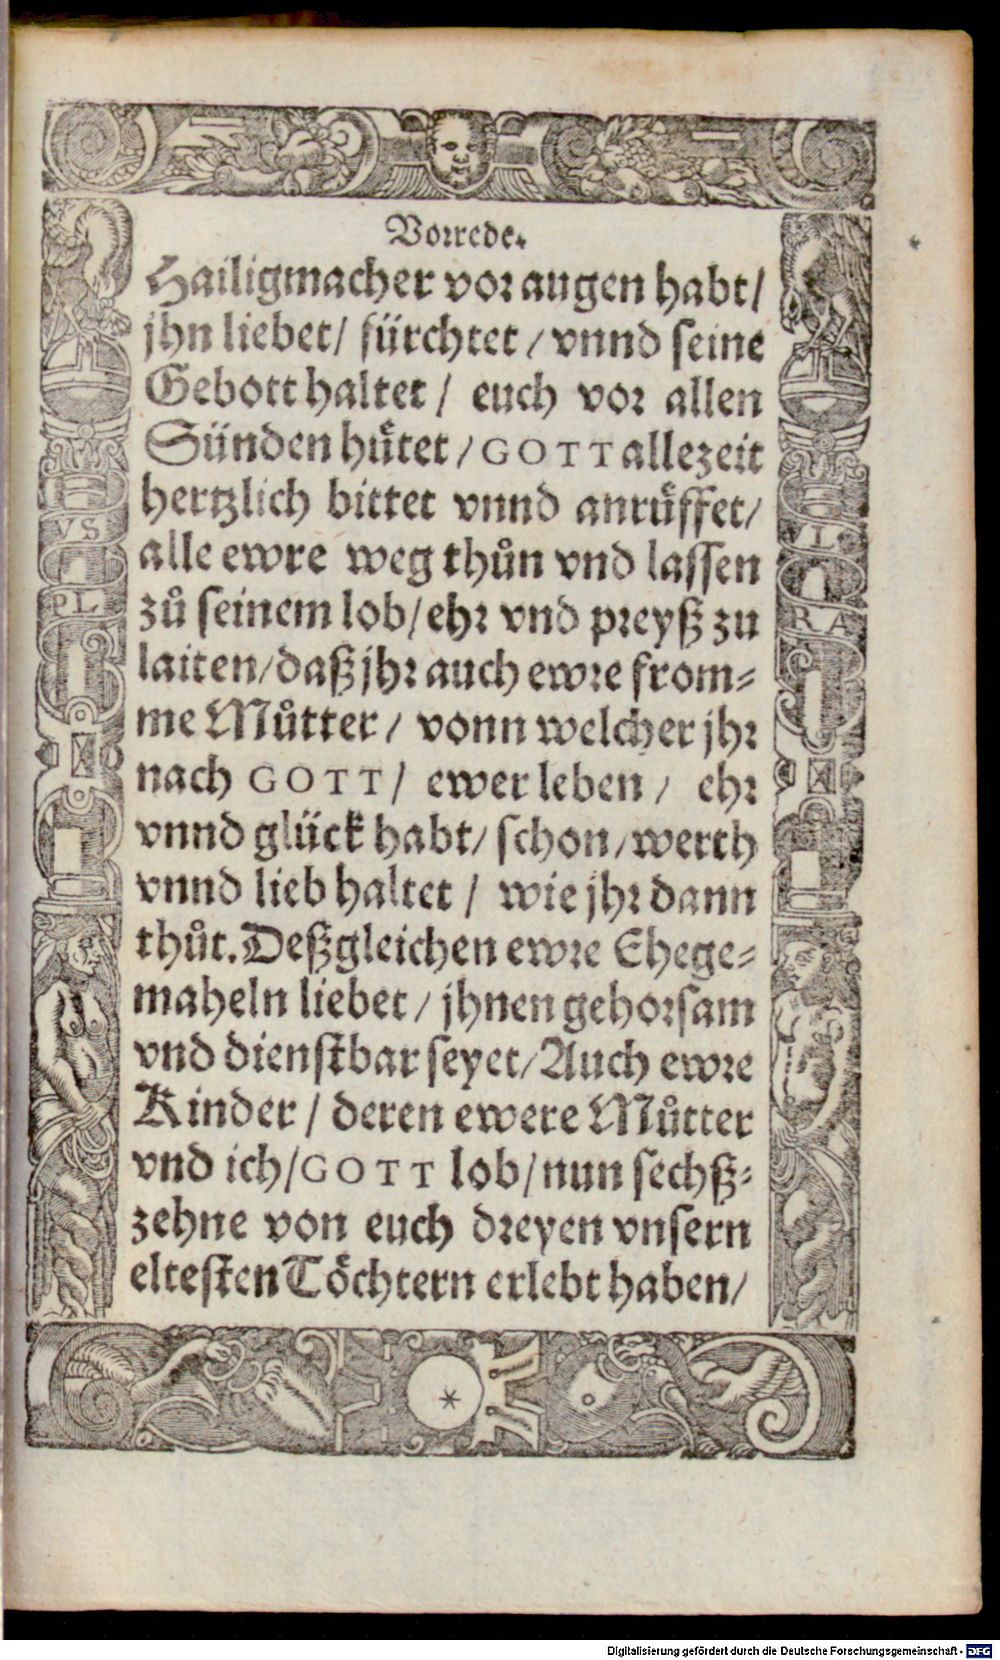 Vorrede.
Hailigmacher vor augen habt/
jhn liebet/ fürchtet / vnnd seine
Gebott haltet / euch vor allen
Sünden huͤtet / GOTT allezeit
hertzlich bittet vnnd anruͤffet/
alle ewre weg thuͦn vnd lassen
zuͦ seinem lob/ ehr vnd preyß zu
laiten/ daß jhr auch ewre from⸗
me Muͦtter / vonn welcher jhr
nach GOTT / ewer leben / ehr
vnnd glück habt/ schon/ werth
vnnd lieb haltet / wie jhr dann
thuͦt. Deßgleichen ewre Ehege⸗
maheln liebet / jhnen gehorsam
vnd dienstbar seyet/ Auch ewre
Kinder / deren ewere Muͦtter
vnd ich/ GOTT lob/ nun sechß⸗
zehne von euch dreyen vnsern
eltesten Toͤchtern erlebt haben/
VS
PL
VL
RA
Digitalisierung gefördert durch die Deutsche Forschungsgemeinschaft - DFG